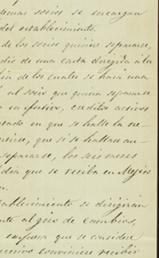 demas socios se encargan
del establecimiento.
de los socios quisiere separarse,
dio de una carta dirigida á la
de los cuales se hará una
al socio que quisiere separarse
en efectivo, creditos activos
estado en que se halle la ne-
que si se hallan en
separarse, los seis meses
dia que se reciba en Mejico
establecimiento se dirigirán
al giro de cambios,
empresa que se considere
conviniere recibir